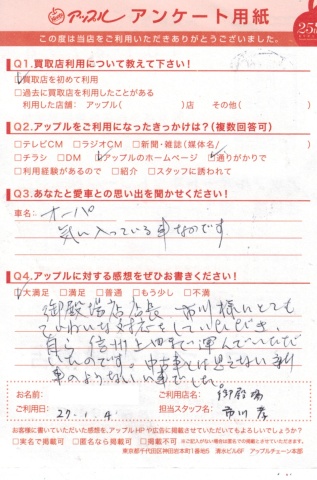 アップル アンケート用紙
25th
この度は当店をご利用いただきありがとうございました。
Q1.買取店利用について教えて下さい!
☑買取店を初めて利用
□過去に買取店を利用したことがある
利用した店舗: アップル( )店 その他( )
Q2.アップルをご利用になったきっかけは?(複数回答可)
□テレビCM □ラジオCM □新聞・雑誌(媒体名/ )
□チラシ □DM ☑アップルのホームページ ☑通りがかりで
□利用経験があるので □紹介 □スタッフに誘われて
Q3.あなたと愛車との思い出を聞かせください!
車名: オーパ
気に入っている車なのです
Q4.アップルに対する感想をぜひお書きください!
☑大満足 □満足 □普通 □もう少し □不満
御殿場店店長 市川様にとても
ていねいな対応をしていただき、
自ら 信州上田まで運んでいただ
いたのです。中古車とは思えない新
車のようないい車でした。
お名前:
ご利用店名: 御殿場
ご利用日: 27. 1. 4.
担当スタッフ名: 市川 孝
お客様に書いていただいた感想を、アップルHPや広告に掲載させていただいてもよろしいでしょうか?
□実名で掲載可 □匿名なら掲載可 □掲載不可 ※ご記入がない場合は匿名での掲載とさせていただきます。
東京都千代田区神田岩本町1番地5 清水ビル6F アップルチェーン本部